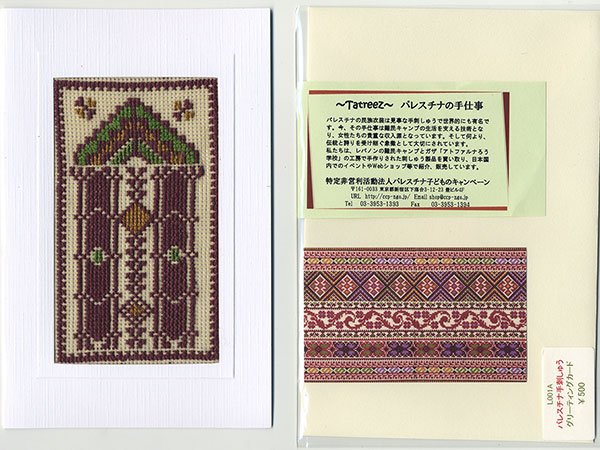 ～Tatreez～ パレスチナの手仕事
パレスチナの民族衣装は見事な手刺しゅうで世界的にも有名で
す。今、その手仕事は難民キャンプの生活を支える技術とな
り、女性たちの貴重な収入源となっています。そして何より、
伝統と誇りを受け継ぐ象徴として大切にされています。
私たちは、レバノンの難民キャンプとガザ「アトファルナろう
学校」の工房で手作りされた刺しゅう製品を買い取り、日本国
内でのイベントやWebショップ等で紹介、販売しています。
特定非営利活動法人パレスチナ子どものキャンペーン
〒161-0033 東京都新宿区下落合3-12-23 豊ビル4F
URL http://ccp-ngo.jp/ Email shop@ccp-ngo.jp
Tel 03-3953-1393 Fax 03-3953-1394
L001A
パレスチナ手刺しゅう
グリーティングカード
￥500